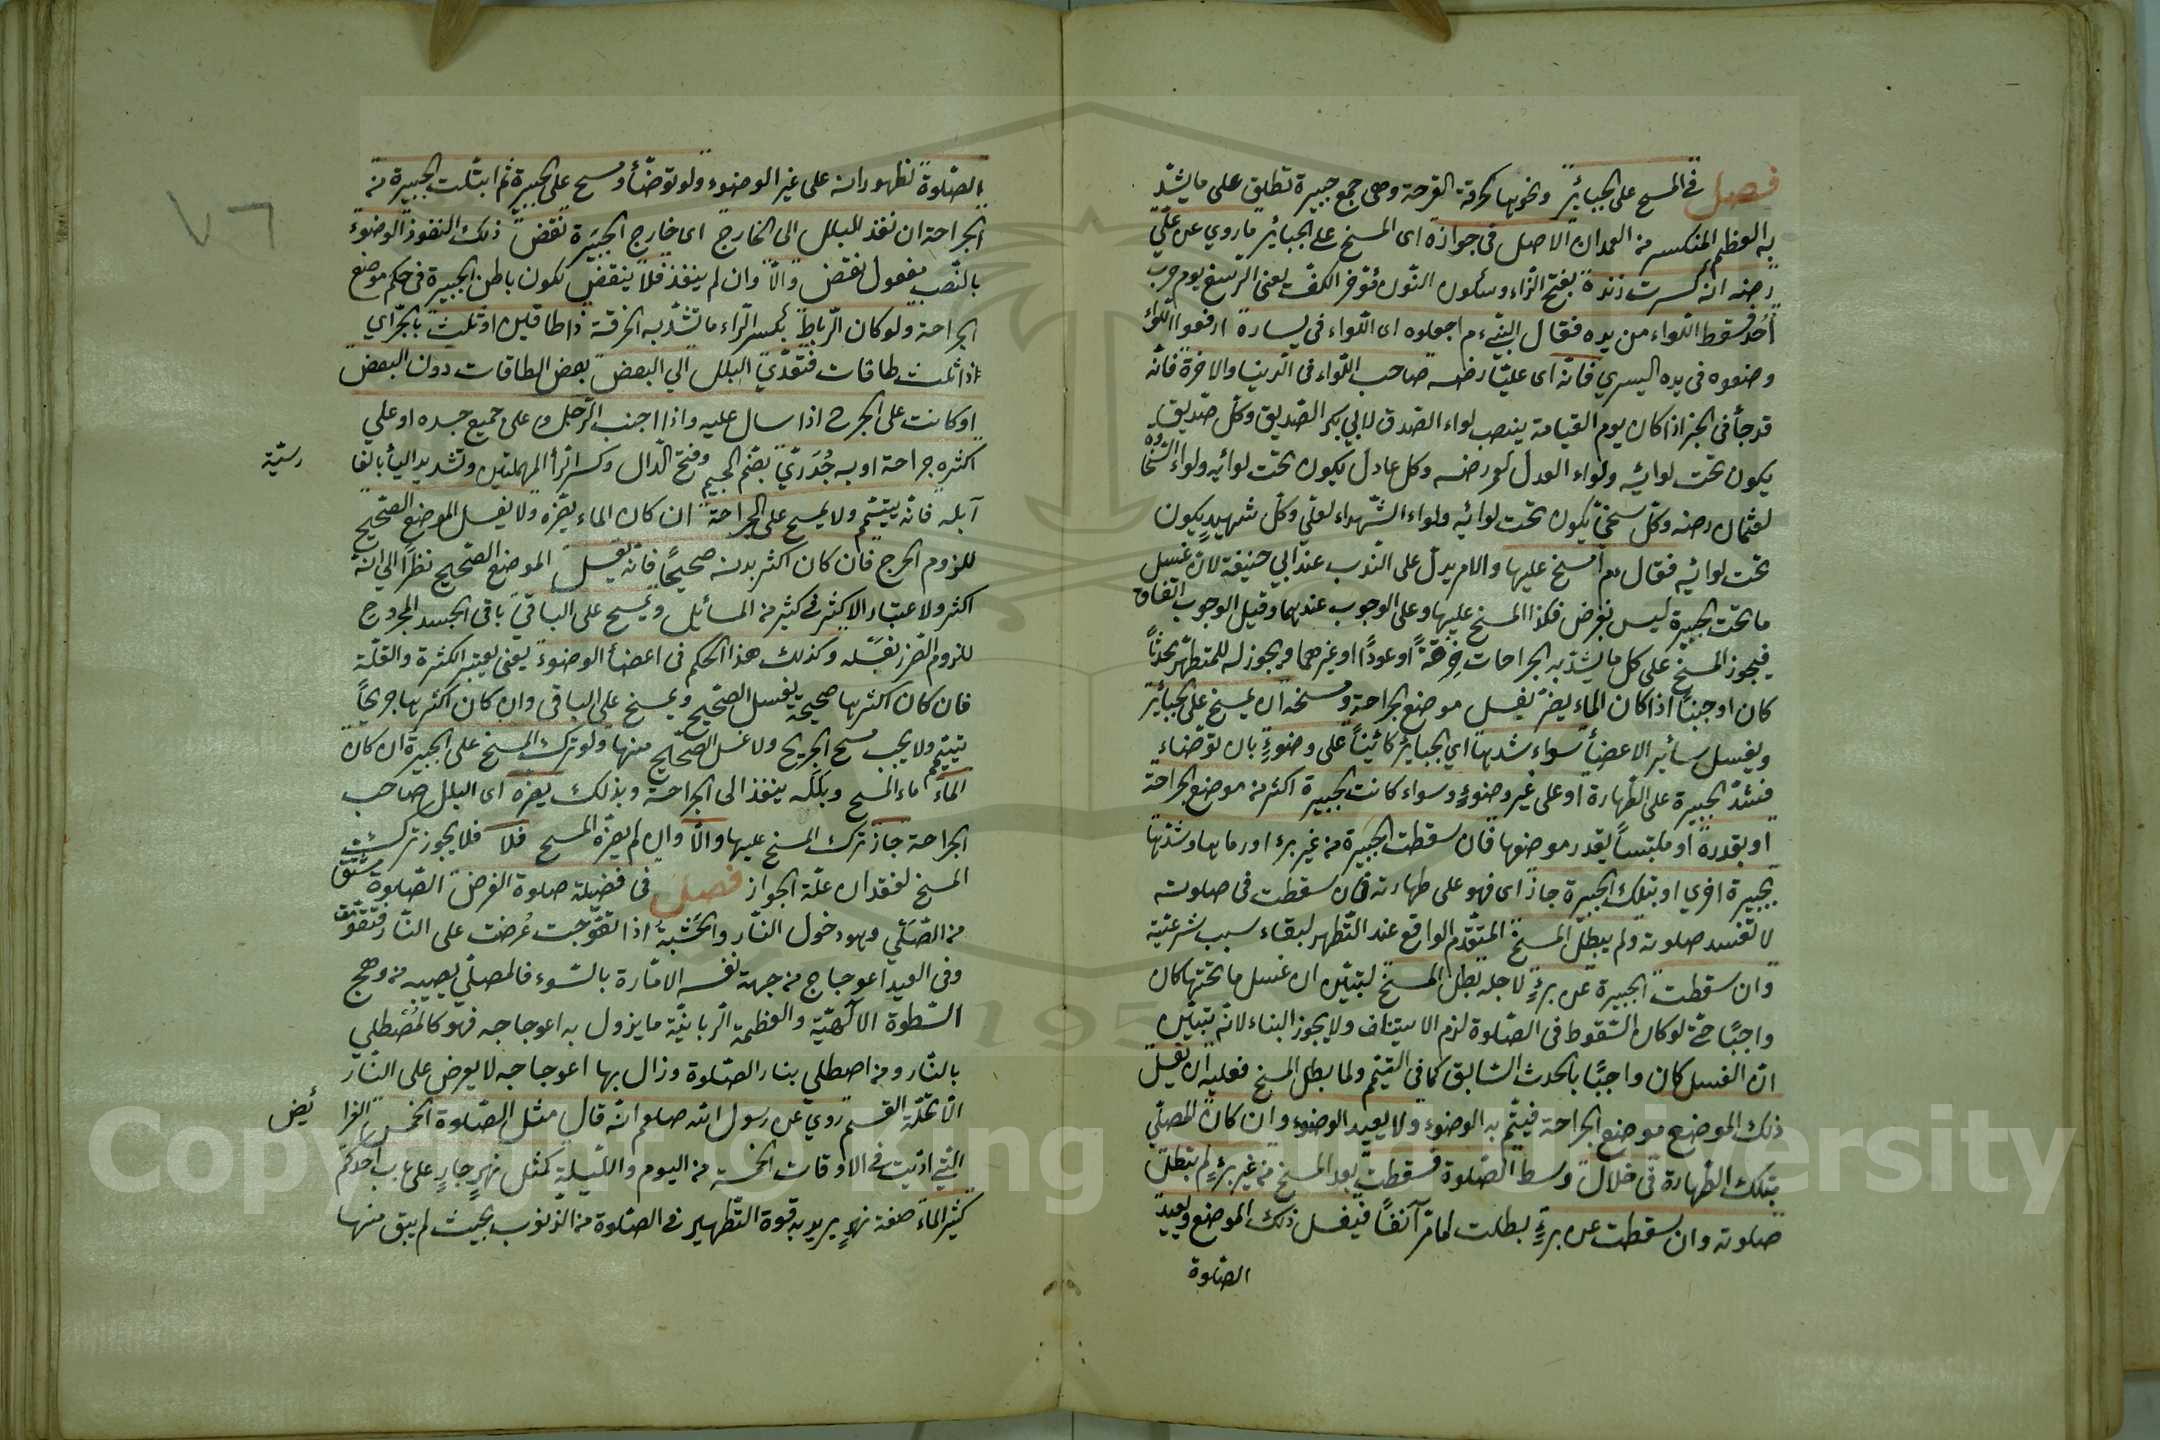 فصل في المسح على الجبائر ونحوها كخرقة القرحة وهى جمع جبيرة تطلق على ما يشدّ
به العظم المنكسر من العيدان الاصل فى جوازه اى المسح على الجبائر ما روي عن عليّ
رضه انه كسرت زنده بفتح الزاء وسكون النون مؤخر الكف يعنى الرسغ يوم حرب
اُحُد فسقط اللواء من يده فقال النبيّ ءم اجعلوه اى اللواء فى يساره ارفعوا اللواء
وضعوه فى يده اليسري فانه اى عليّا رضه صاحب اللواء فى الدنيا والاخرة فانّه
قد جاء فى الخبر اذا كان يوم القيامة ينصب لواء الصدق لابي بكر الصّديق وكل صدّيق
يكون تحت لوائه ولواء العدل لعمر رضه وكل عادل يكون تحت لوائه ولواء السّخاوة
لعثمان رضه وكلّ سخيّ يكون تحت لوائه ولواء الشّهداء لعليّ وكلّ شهيد يكون
تحت لوائه فقال ءم امسح عليها والامر يدل على الندب عند ابي حنيفة لان غسل
ما تحت الجبيرة ليس بفرض فكذا المسح عليها وعلى الوجوب عندهما وقيل الوجوب اتفاق
فيجوز المسح على كل ما يشدّ به الجراحات خرقةً او عودًا او غيرهما ويجوز له للمتطهر محدثًا
كان او جنبًا اذا كان الماء يضرّ بغسل موضع الجراحة ومسحه ان يمسح على الجبائر
ويغسل سائر الاعضاء سواء شدها اي الجبائر كائنًا على وضوءٍ بان توضاء
فشدّ الجبيرة على الطهارة او على غير وضوءٍ وسواء كانت الجبيرة اكثر من موضع الجراحة
او بقدره او ملتبسًا بقدر موضعها فان سقطت الجبيرة من غير برء او رماها وشدّها
بجبيرة اخري او بتلك الجبيرة جاز اى فهو على طهارته فان سقطت فى صلوته
لا تفسد صلوته ولم يبطل المسح المتقدّم الواقع عند التطهر لبقاء سبب شرعيّته
وان سقطت الجبيرة عن برءٍ لاجله بطل المسح لتبيّن ان غسل ما تحتها كان
واجبًا حتّى لو كان السّقوط فى الصّلوة لزم الاستيناف ولا يجوز البناء لانه تبيّن
انّ الغسل كان واجبًا بالحدث السّابق كما فى التيمّم ولما بطل المسح فعليه ان يغسل
ذلك الموضع موضع الجراحة فيتمّ به الوضوء ولا يعيد الوضوء وان كان المصلّي
بتلك الطهارة فى خلال وسط الصّلوة فسقطت بعد المسح من غير برءٍ لم تبطل
صلوته وان سقطت عن برءٍ بطلت لما مرّ آنفًا فيغسل ذلك الموضع ويعيد
الصّلوة
٧٦
الصّلوة لظهور انه على غير الوضوء ولو توضّأ ومسح على الجبيرة ثم ابتلّت الجبيرة من
الجراحة ان نفذ البلل الى الخارج اى خارج الجبيرة نقض ذلك النفوذ الوضوء
بالنّصب مفعول نقض والّا وان لم ينفذ فلا ينقض لكون باطن الجبيرة فى حكم موضع
الجراحة ولو كان الرّباط بكسر الرّاء ما تشدّ به الخرقة ذا طاقين او ثلث بالجرّ اي
ذا ثلث طاقات فتعدّي البلل الي البعض بعض الطاقات دون البعض
او كانت على الجرح اذا سال عليه واذا اجنب الرّجل وعلى جميع جسده او علي
اكثره جراحة او به جُدَريّ بضم الجيم وفتح الدال وكسر الرأ المهملتين وتشديد اليأ بالفا
رسيّة
آبله فانه يتيمّم ولا يمسح على الجراحة ان كان الماء يضرّه ولا يغسل الموضع الصّحيح
للزوم الحرج فان كان اكثر بدنه صحيحًا فانه يغسل الموضع الصّحيح نظرًا الي انّه
اكثر ولاعتبار الاكثر فى كثير من المسائل ويمسح على الباقي باقى الجسد المجروح
للزوم الضرر بغسله وكذلك هذا الحكم فى اعضأ الوضوء يعنى يعتبر الكثرة والقلّة
فان كان اكثرها صحيحة يغسل الصّحيح ويمسح على الباقى وان كان اكثرها جريحًا
يتيمّم ولا يجب مسح الجريح ولا غسل الصّحيح منها ولو ترك المسح على الجبيرة ان كان
الماء ماء المسح وبلله ينفذ الى الجراحة وبذلك يضرّه اى البلل صاحب
الجراحة جاز ترك المسح عليها والّا وان لم يضرّه المسح فلا فلا يجوز ترك
المسح لفقدان علّة الجواز فصل فى فضيلة صلوة الفرض الصّلوة مشتق
من الصّلي وهو دخول النّار والخشبة اذا تعوّجت عُرضت على النّار فتقوّت
وفى العبد اعوجاج من جهة نفسه الامّارة بالسّوء فالمصلّي يصيبه من وهج
السّطوة الالٓهيّة والعظمة الرّبانيّة ما يزول به اعوجاجه فهو كالمُصْطلي
بالنّار ومن اصطلي بنار الصّلوة وزال بها اعوجاجه لا يعرض على النّار
الّا تحلّة القسم روي عن رسول الله صلعم انّه قال مثل الصّلوة الخمس الفرا
ئض
الّتي ادّيت فى الاوقات الخمسة من اليوم واللّيلة كمثل نهرٍ جارٍ على باب احدكم
كثير الماء صفة نهرٍ يريد به قوة التّطهير فى الصّلوة من الذنوب بحيث لم يبق منها
Copyright © King Saud University
195